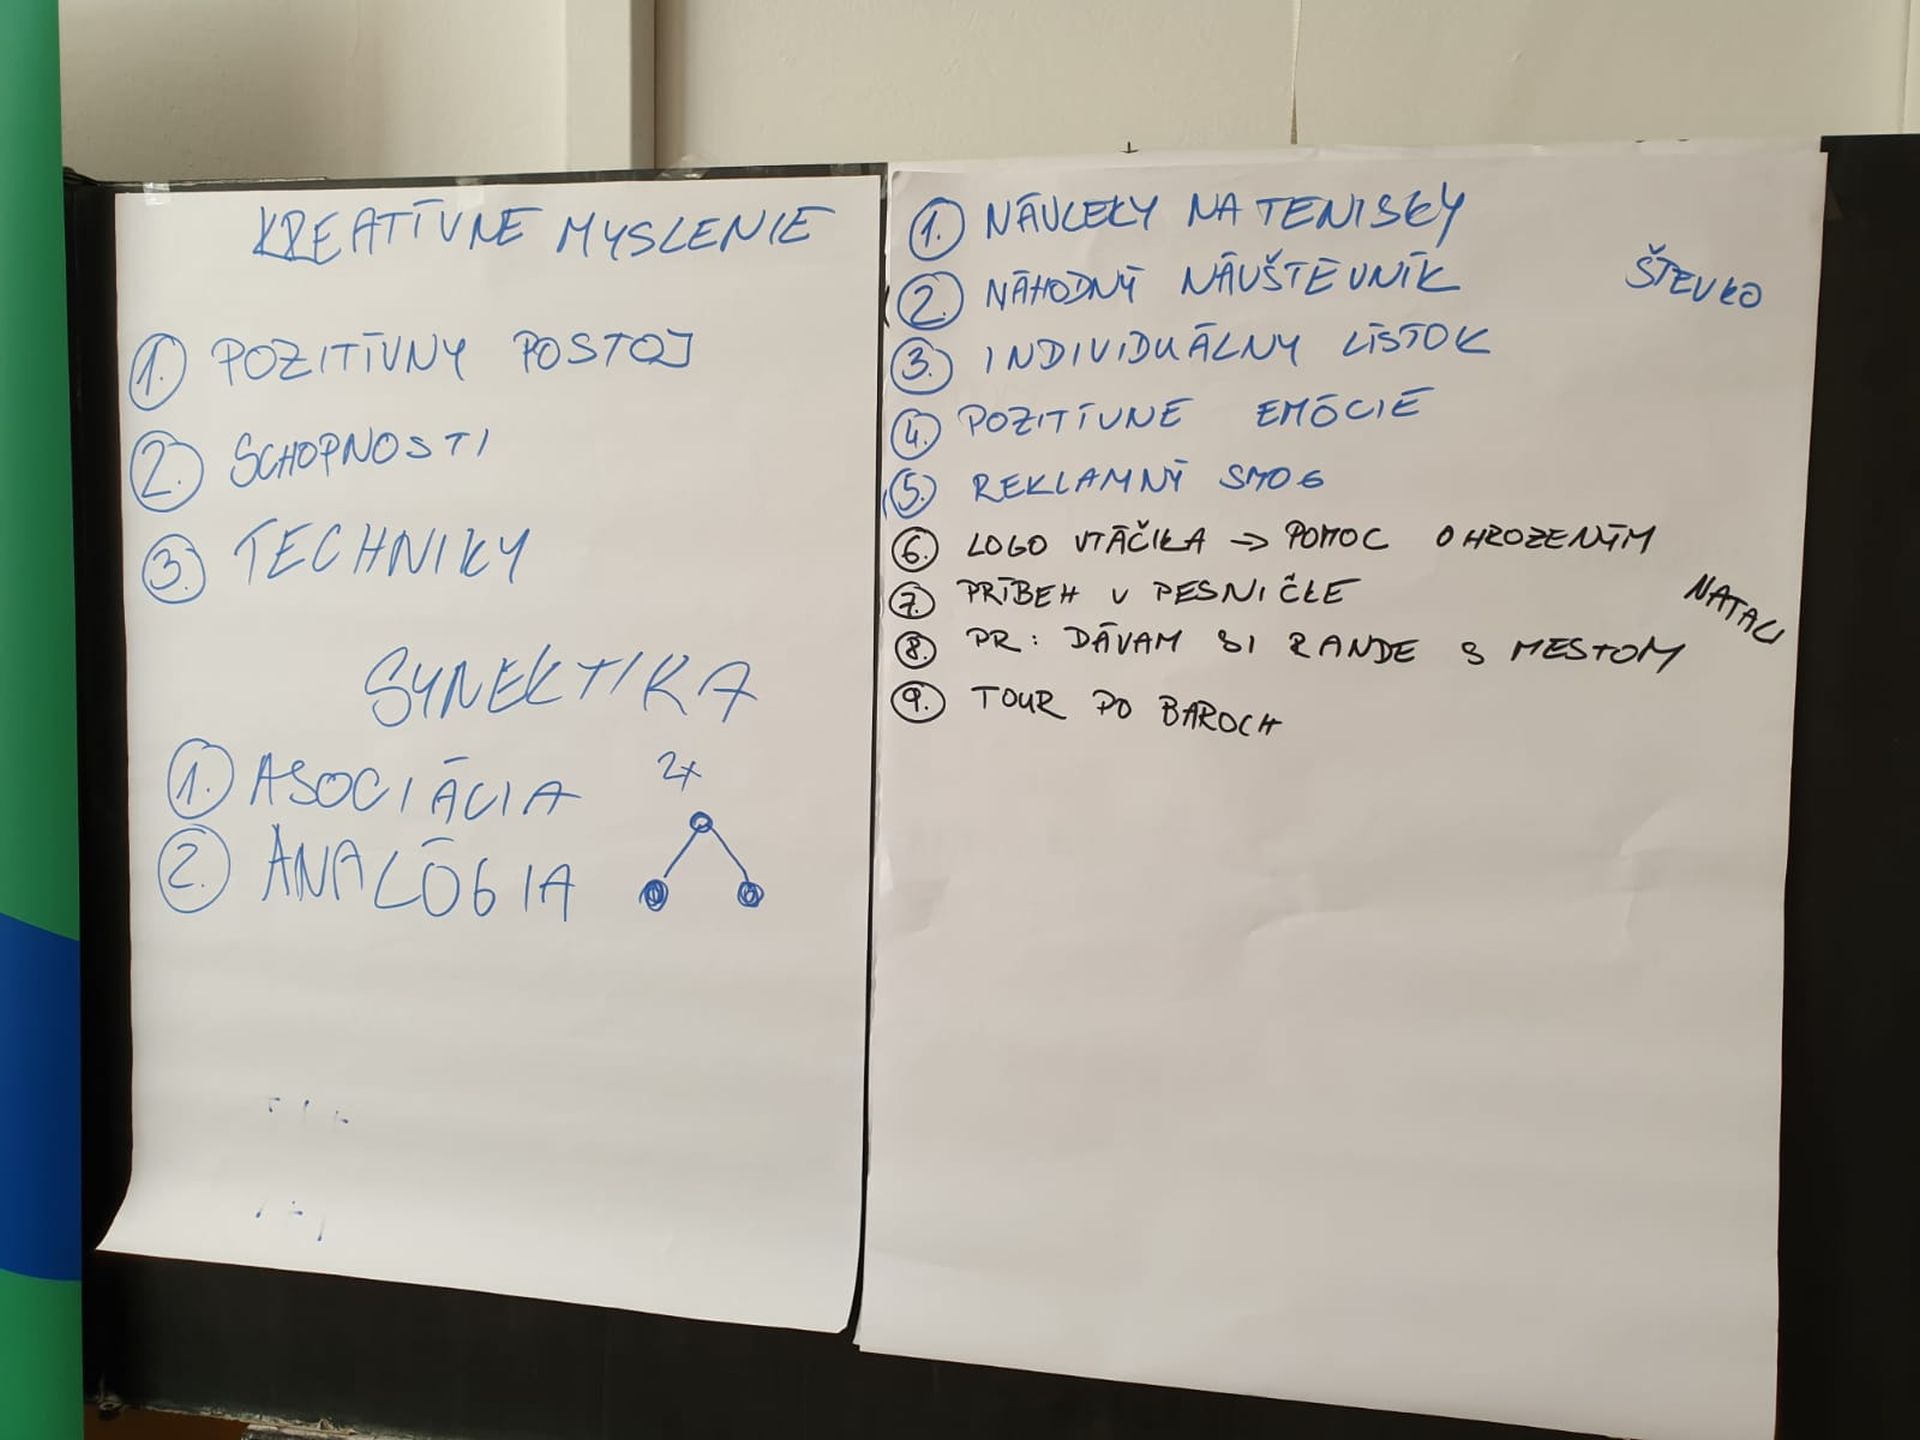 KREATÍVNE MYSLENIE
1. POZITÍVNY POSTOJ
2. SCHOPNOSTI
3. TECHNIKY
SYNEKTIKA
1. ASOCIÁCIA
2. ANALÓGIA
2x
1. NÁVLEKY NA TENISKY
2. NÁHODNÝ NÁVŠTEVNÍK
ŠTEVKO
3. INDIVIDUÁLNY LÍSTOK
4. POZITÍVNE EMÓCIE
5. REKLAMNÝ SMOG
6. LOGO VTÁČIKA → POMOC OHROZENÝM
7. PRÍBEH V PESNIČKE
NATALI
8. PR: DÁVAM SI RANDE S MESTOM
9. TOUR PO BAROCH